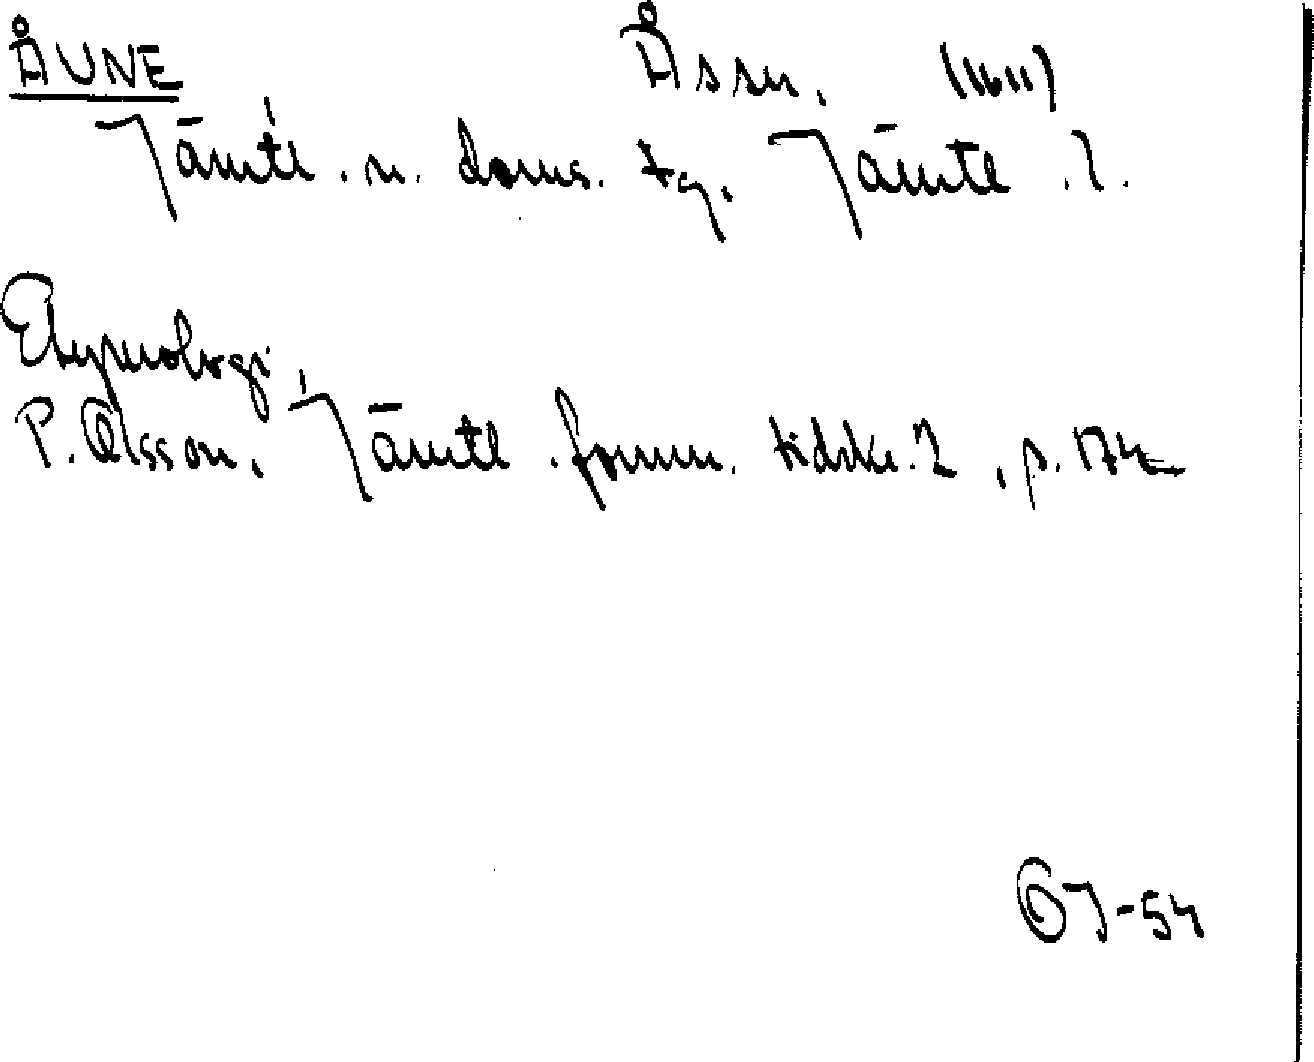 ÅUNE Åssn. (1611)
Jämtl. n. doms. tg. Jämtl. l.
Etymologi
P. Olsson, Jämtl. fornm. tidskr. 2, p. 174
OJ-54